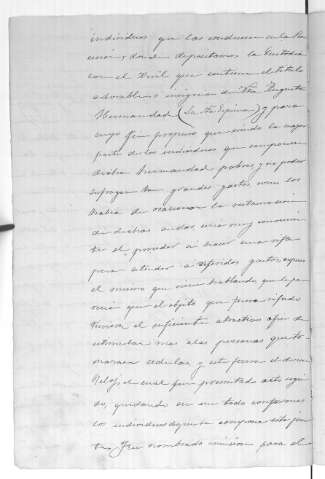 individuos que las conducen en la
donde depositamos la Custodia
con el Viril que contiene el titulo
adorable e insignia de Ntra Augusta
Hermandad (La Sta Espina) y para
cuyo fin propuso que siendo la mayor
parte de los individuos que componen
dicha Hermandad pobres y no poder
sufragar tan grandes gastos como los
había de ocasionar la restauracion
de dichas andas era muy convenien
te el proceder a hacer una rifa
para atender a referidos gastos,
el mismo que
que el objeto que fuera rifado
tuviera el suficiente atractivo afin de
estimular mas a las personas que to
maran cedulas, y este fuera el de un
Relog, el cual fue presentado acto segui
do, quedando en un todo conformes
los individuos de esta
fue nombrado comision para el